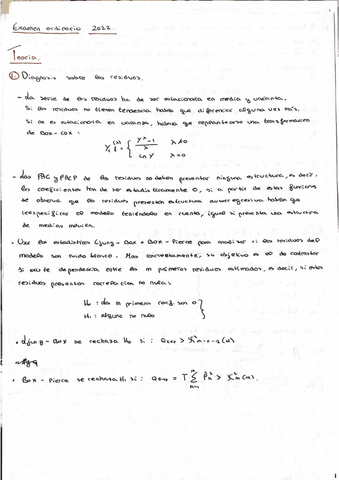 Examen ordinario 2022
Teoría.
① Diagnosis sobre los residuos.
- La serie de los residuos ha de ser estacionaria en media y varianza.
Si los residuos no tienen tendencia habrá que diferenciar alguna vez más.
Si no es estacionaria en varianza, habría que replantearse una transformación
de Box-Cox:
Y_t^(λ) = { (Y^λ - 1)/λ   λ≠0
Ln Y   λ=0
- Las FAC y FACP de los residuos no deben presentar ninguna estructura, es decir,
los coeficientes han de ser estadísticamente 0, si a partir de estas funciones
se observa que los residuos presentan estructura autorregresiva habrá que
reespecificar el modelo teniéndolo en cuenta, igual si presenta una estructura
de medias móviles.
- Use los estadísticos Ljung-Box o Box-Pierce para analizar si los residuos del
modelo son ruido blanco. Más concretamente, su objetivo es el de contrastar
si existe dependencia entre los m primeros residuos estimados, es decir, si estos
residuos presentan correlación no nula:
H₀: los m primeros coef. son 0
H₁: alguno no nulo
• Ljung-Box se rechaza H₀ si:
• Box-Pierce se rechaza H₀ si: